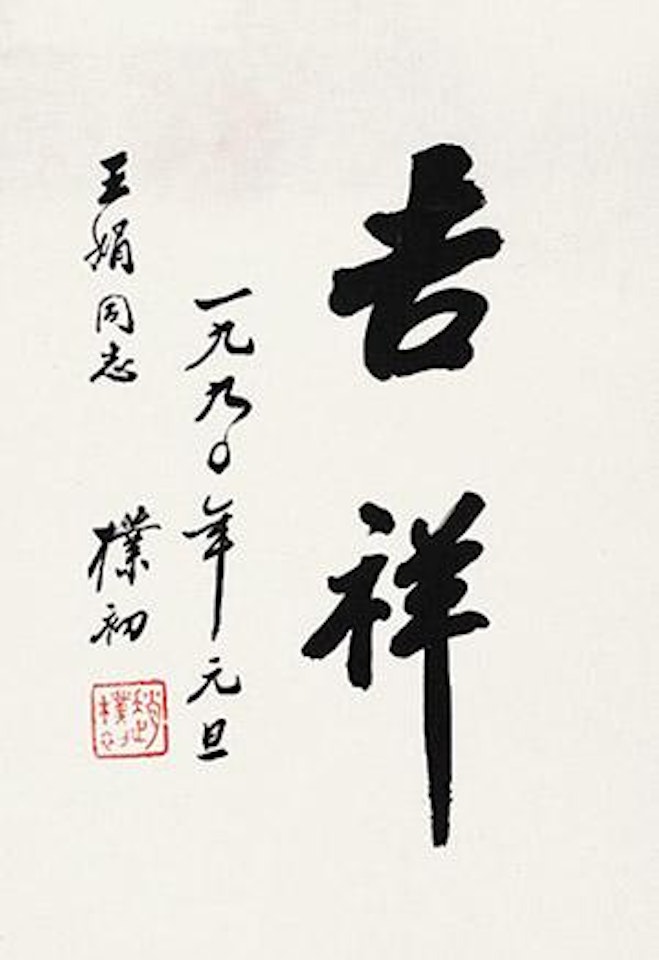 吉祥
一九九〇年元旦
王娟同志
樸初
趙樸初